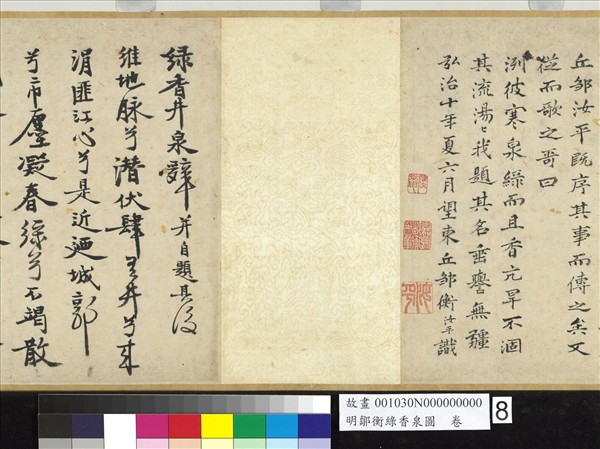 丘邹汝平既序其事而傳之矣又
從而歌之哥曰
洌彼寒泉緑而且香亢旱不涸
其流湯〻我題其名垂譽無疆
弘治十年夏六月望東丘邹衡汝平識
緑香井泉辭 并自題其後
維地脉兮潜伏肆 井兮
涓匪江心兮是近廼城郭
兮市廛凝春緑兮不竭散
故畫 001030N000000000
明鄒衡綠香泉圖 卷
8